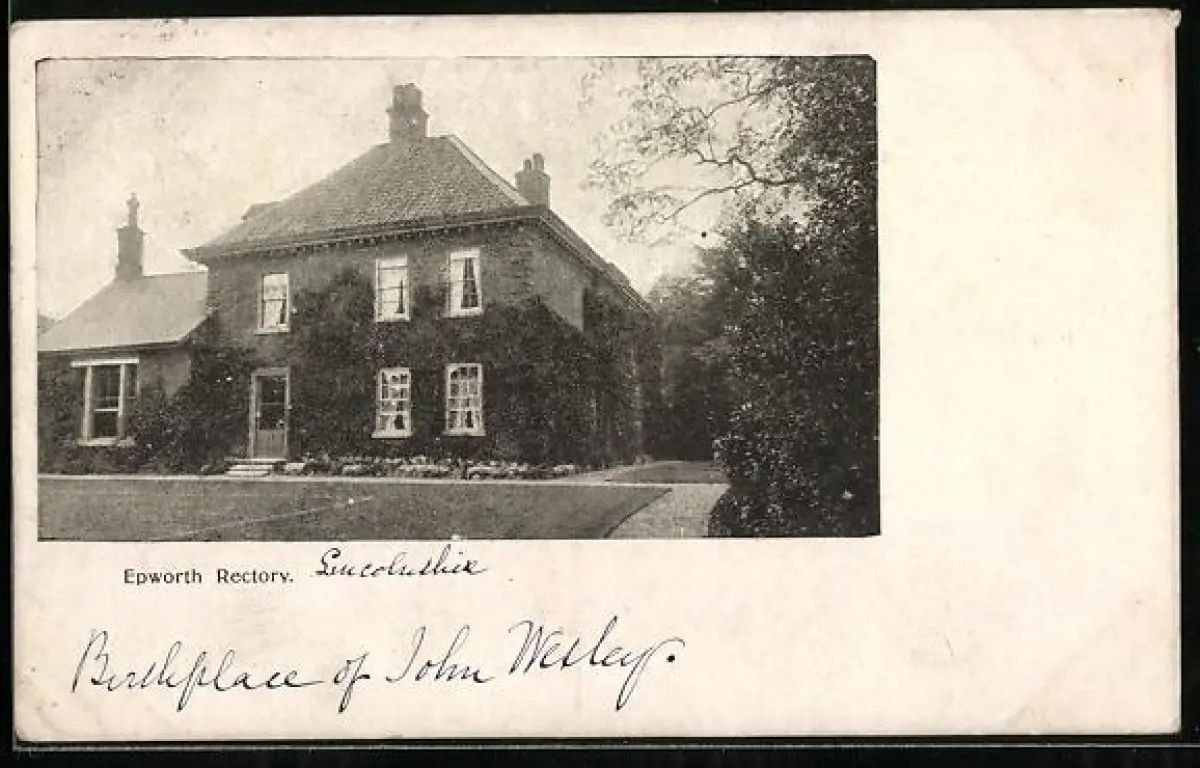 Epworth Rectory. Lincolnshire
Birthplace of John Wesley.